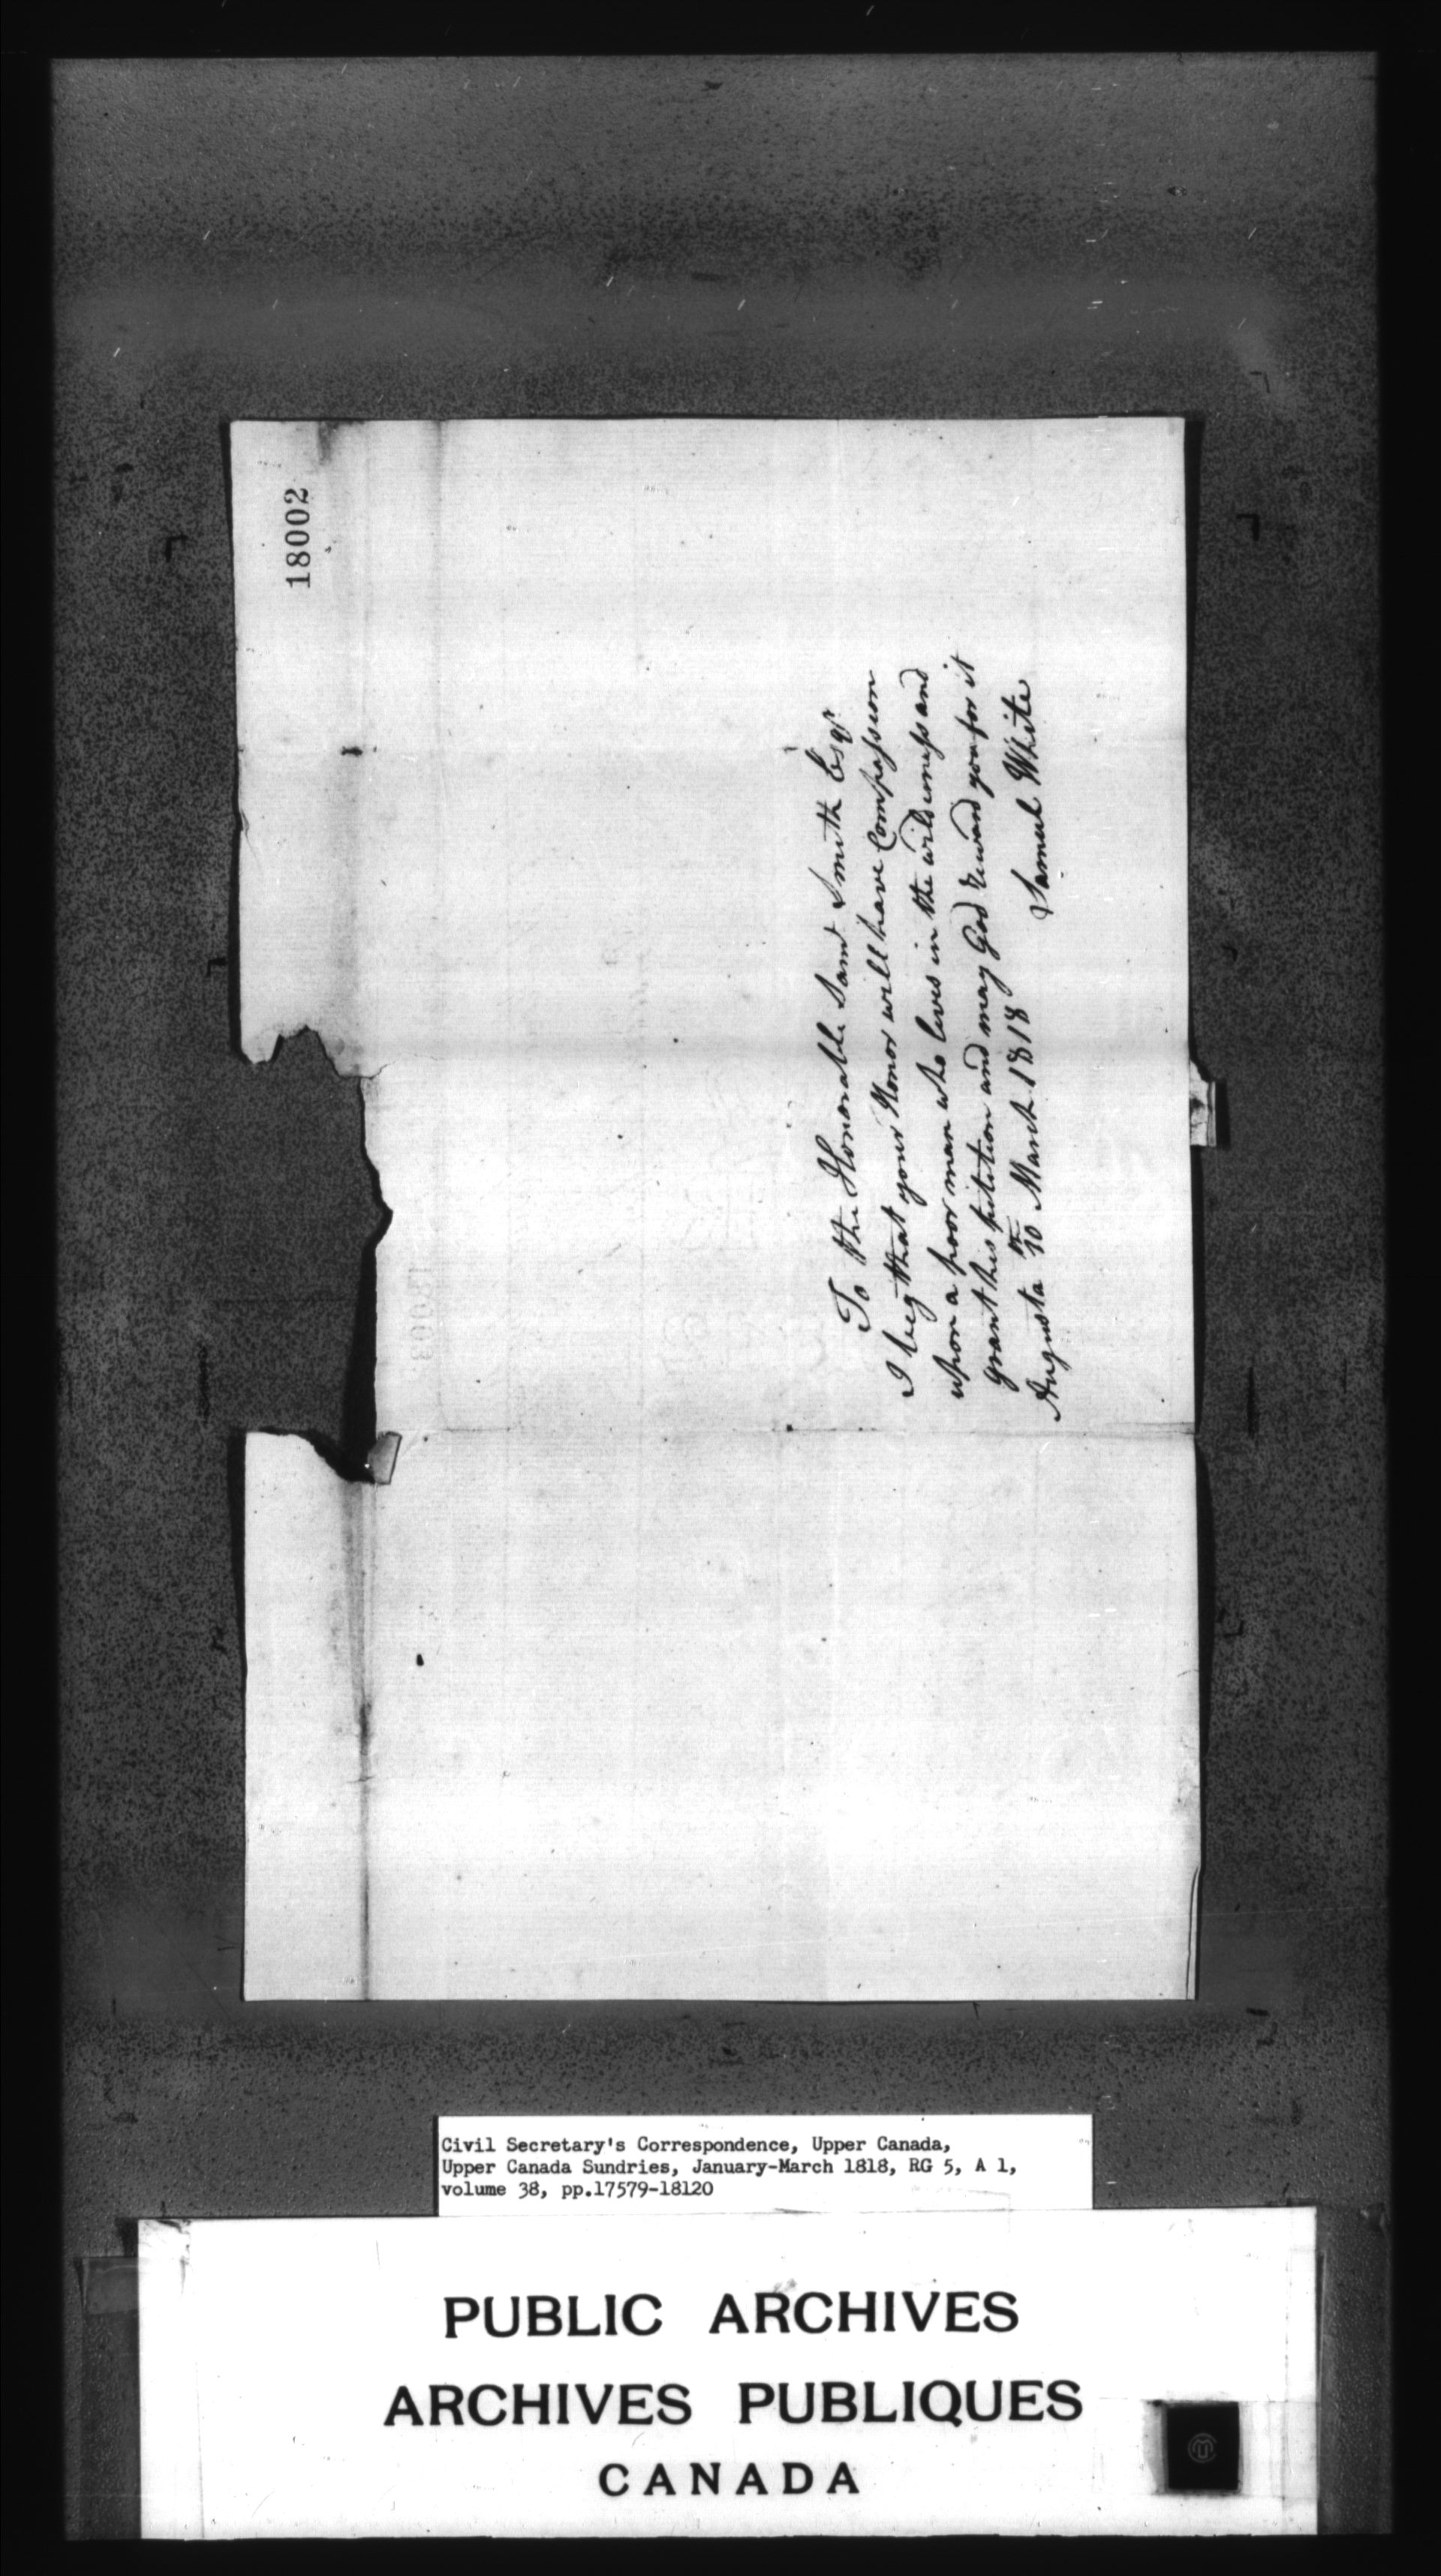 18002
To the Honorable Saml Smith Esqr
I beg that your Honor will have Compassion
upon a poor man who lives in the wilderness and
grant his petition and may God reward you for it
Augusta 10th March 1818 Samuel White
Civil Secretary's Correspondence, Upper Canada,
Upper Canada Sundries, January-March 1818, RG 5, A 1,
volume 38, pp.17579-18120
PUBLIC ARCHIVES
ARCHIVES PUBLIQUES
CANADA